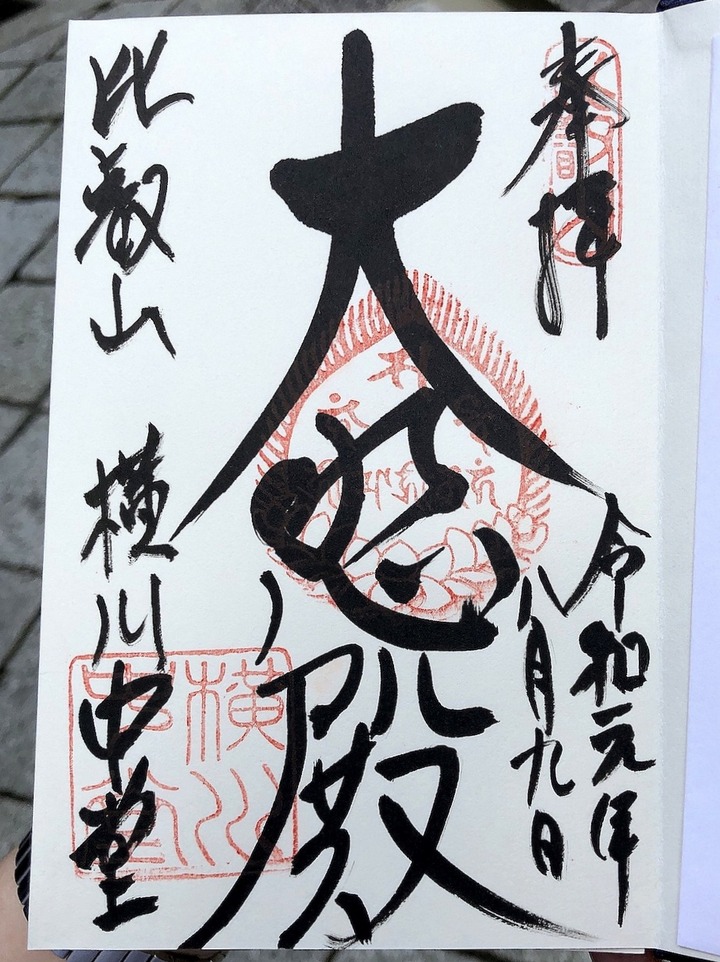 奉拝
令和元年
八月九日
大悲殿
比叡山 横川中堂
横川
中堂